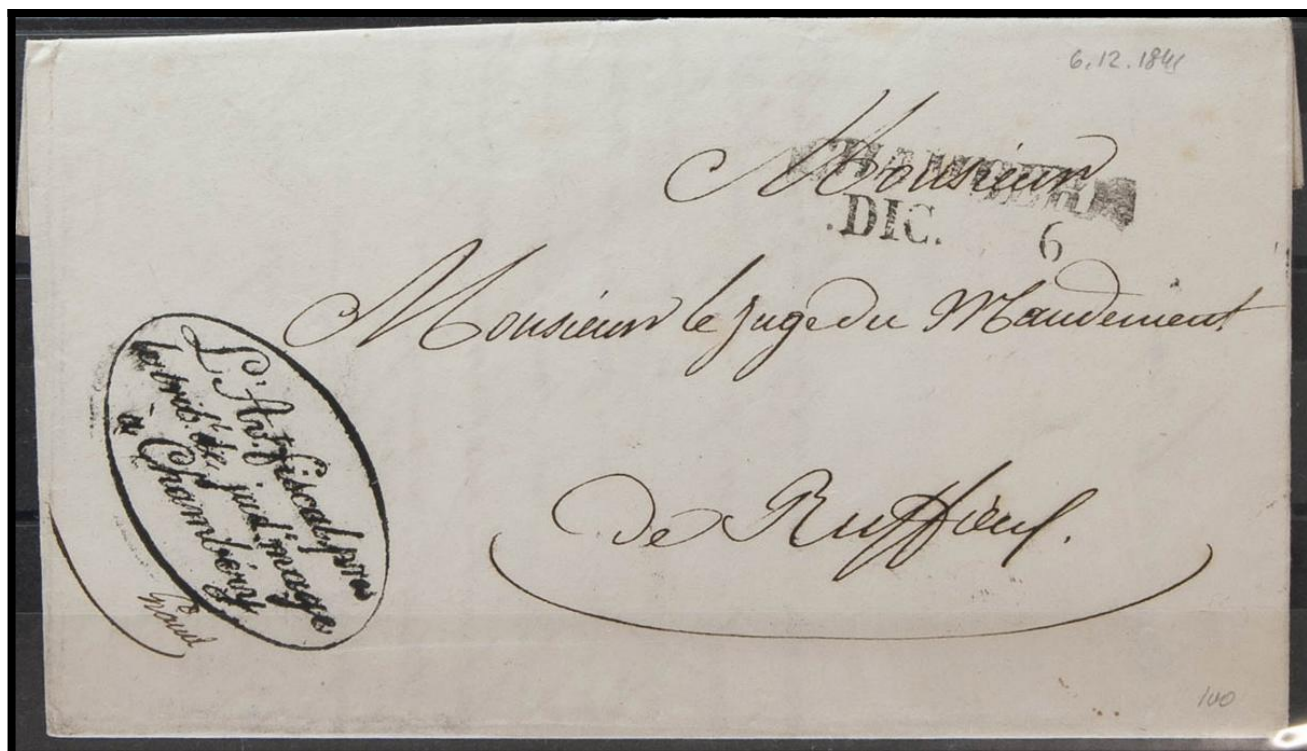 6.12.184
Monsieur
DIC. 6
Monsieur le Juge du Mandement
de Ruffieux.
L'Av.t fiscal près
le trib. de jud. mage
à Chambéry
100